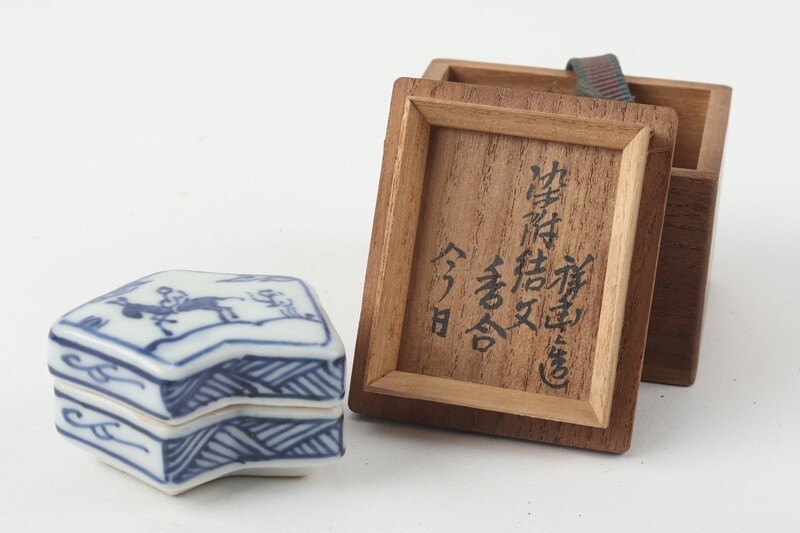 祥山造
染附結文
香合
今日